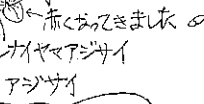 ←赤くなってきました
ナイヤマアジサイ
アジサイ